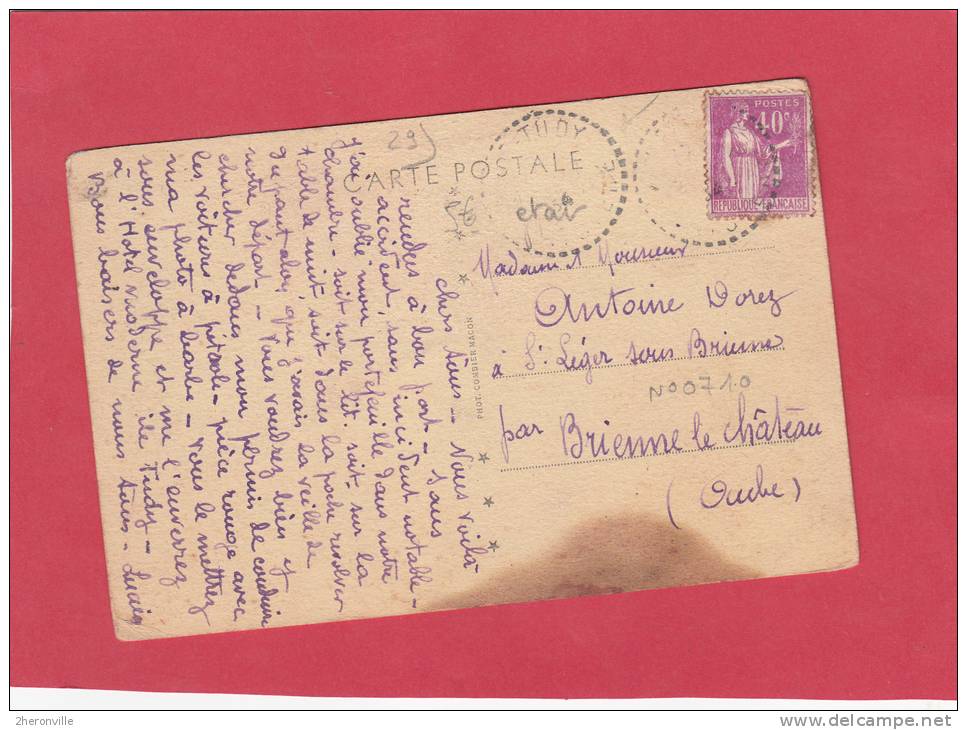 29)
CARTE POSTALE
TUDY
POSTES
40c
REPUBLIQUE FRANCAISE
5€
état
chers tous - Nous voilà
rendus à bon port - sans
accident, sans incident notable -
J'ai oublié mon portefeuille dans notre
chambre - soit sur le lit. soit sur la
table de nuit soit dans la poche revolver
du pantalon, que j'avais la veille de
notre départ - Vous voudrez bien y
chercher dedans mon permis de conduire
les voitures à pétrole - pièce rouge avec
ma photo à barbe - Vous le mettrez
sous enveloppe et me l'enverrez
à l'Hotel moderne ile Tudy -
Bons baisers de nous tous - Lucien
PHOT. COMBIER MACON
Madame & Monsieur
Antoine Dorez
à St Léger sous Brienne
N00710
par Brienne le château
(Aube)
2heronville
www.delcampe.net